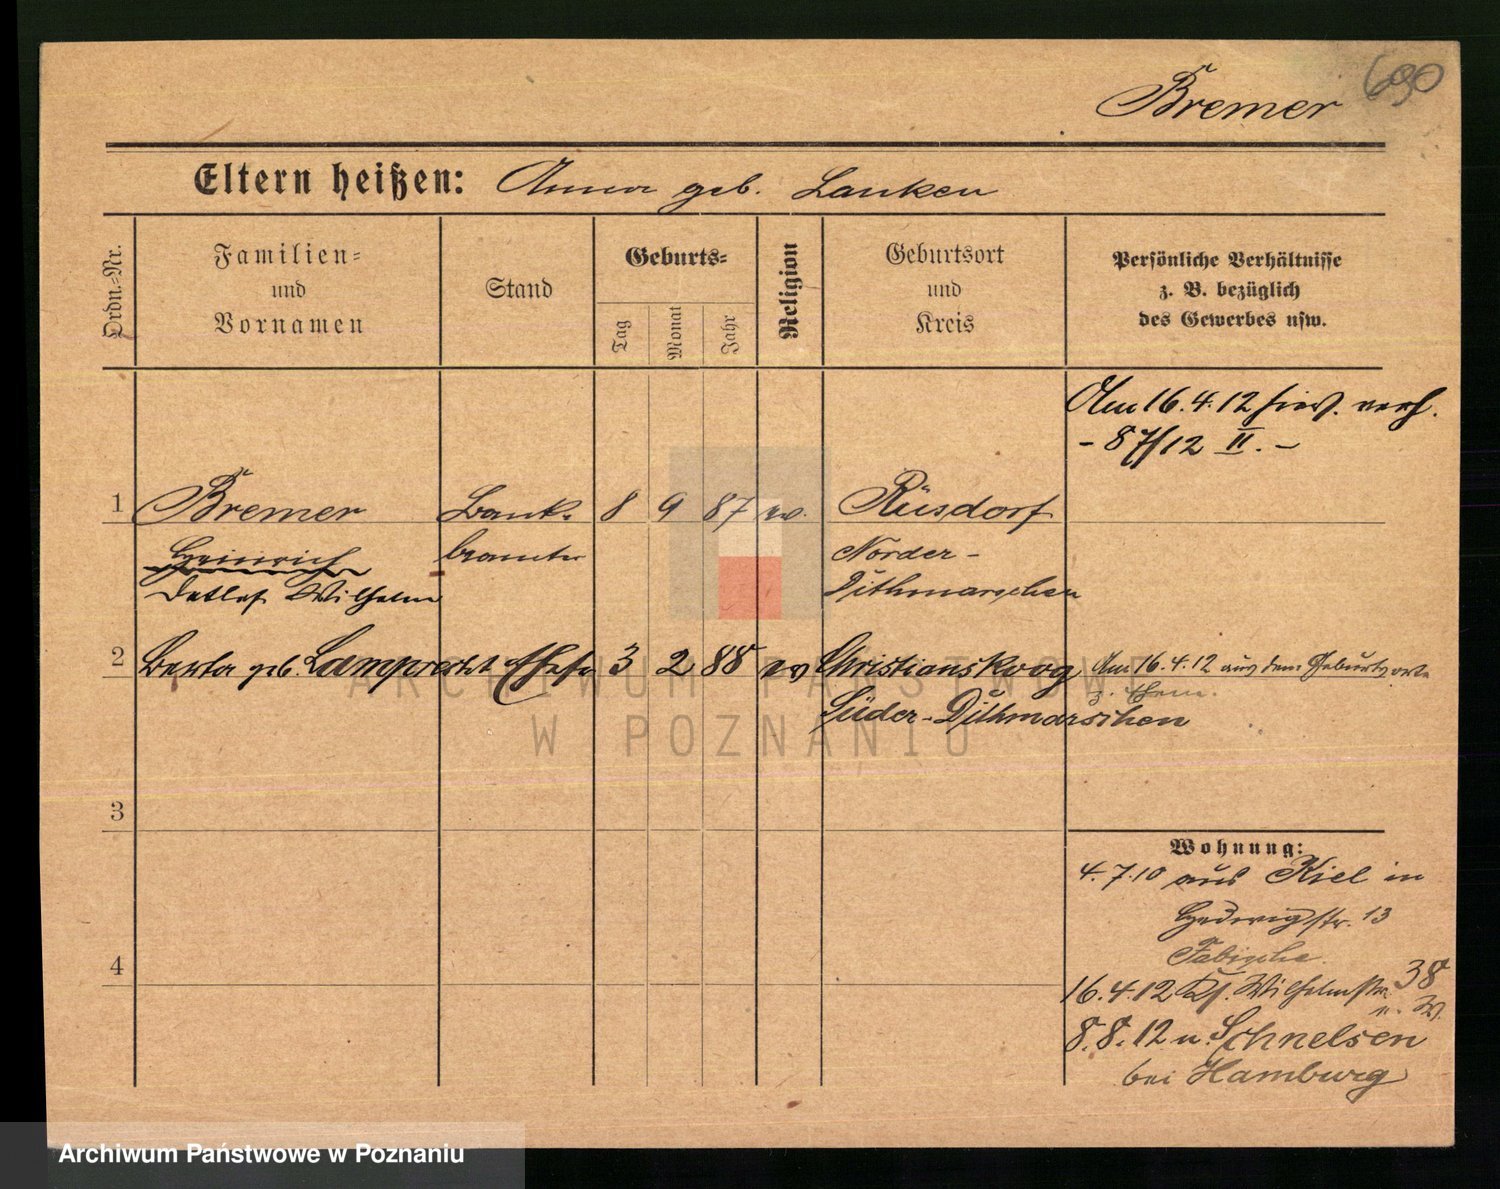 690
Bremer
Eltern heißen: Anna geb. Lanken
Ordn.-Nr.
Familien-
und
Vornamen
Stand
Geburts-
Tag
Monat
Jahr
Religion
Geburtsort
und
Kreis
Persönliche Verhältnisse
z. B. bezüglich
des Gewerbes usw.
Am 16.4.12 hier verh.
- 87/12 II. -
1 Bremer Bank- 8 9 87 ev. Rüsdorf
Heinrich beamter Norder-
Detlef Wilhelm Dithmarschen
2 Berta geb. Lamprecht Ehefr 3 2 88 ev Christianskoog Am 16.4.12 aus dem Geburtsorte
z. Ehem.
Süder-Dithmarschen
3
Wohnung:
4.7.10 aus Kiel in
Hedwigstr. 13
4
16.4.12 Kl. Wilhelmstr. 38
n. W.
8.8.12 n. Schnelsen
bei Hamburg
ARCHIWUM PAŃSTWOWE
W POZNANIU
Archiwum Państwowe w Poznaniu